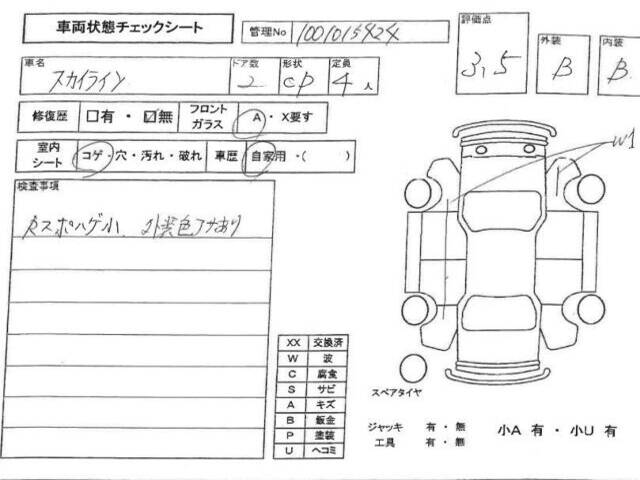 車両状態チェックシート 管理No 1001015424
評価点 3,5 外装 B 内装 B
車名 スカイライン ドア数 2 形状 CP 定員 4 人
修復歴 □有・☑無 フロントガラス A・X要す
室内シート コゲ・穴・汚れ・破れ 車歴 自家用・( )
検査事項
Rスポハゲ小、外装色アサあり
W1
XX 交換済
W 波
C 腐食
S サビ
A キズ
B 鈑金
P 塗装
U ヘコミ
スペアタイヤ
ジャッキ 有・無
工具 有・無
小A 有・小U 有